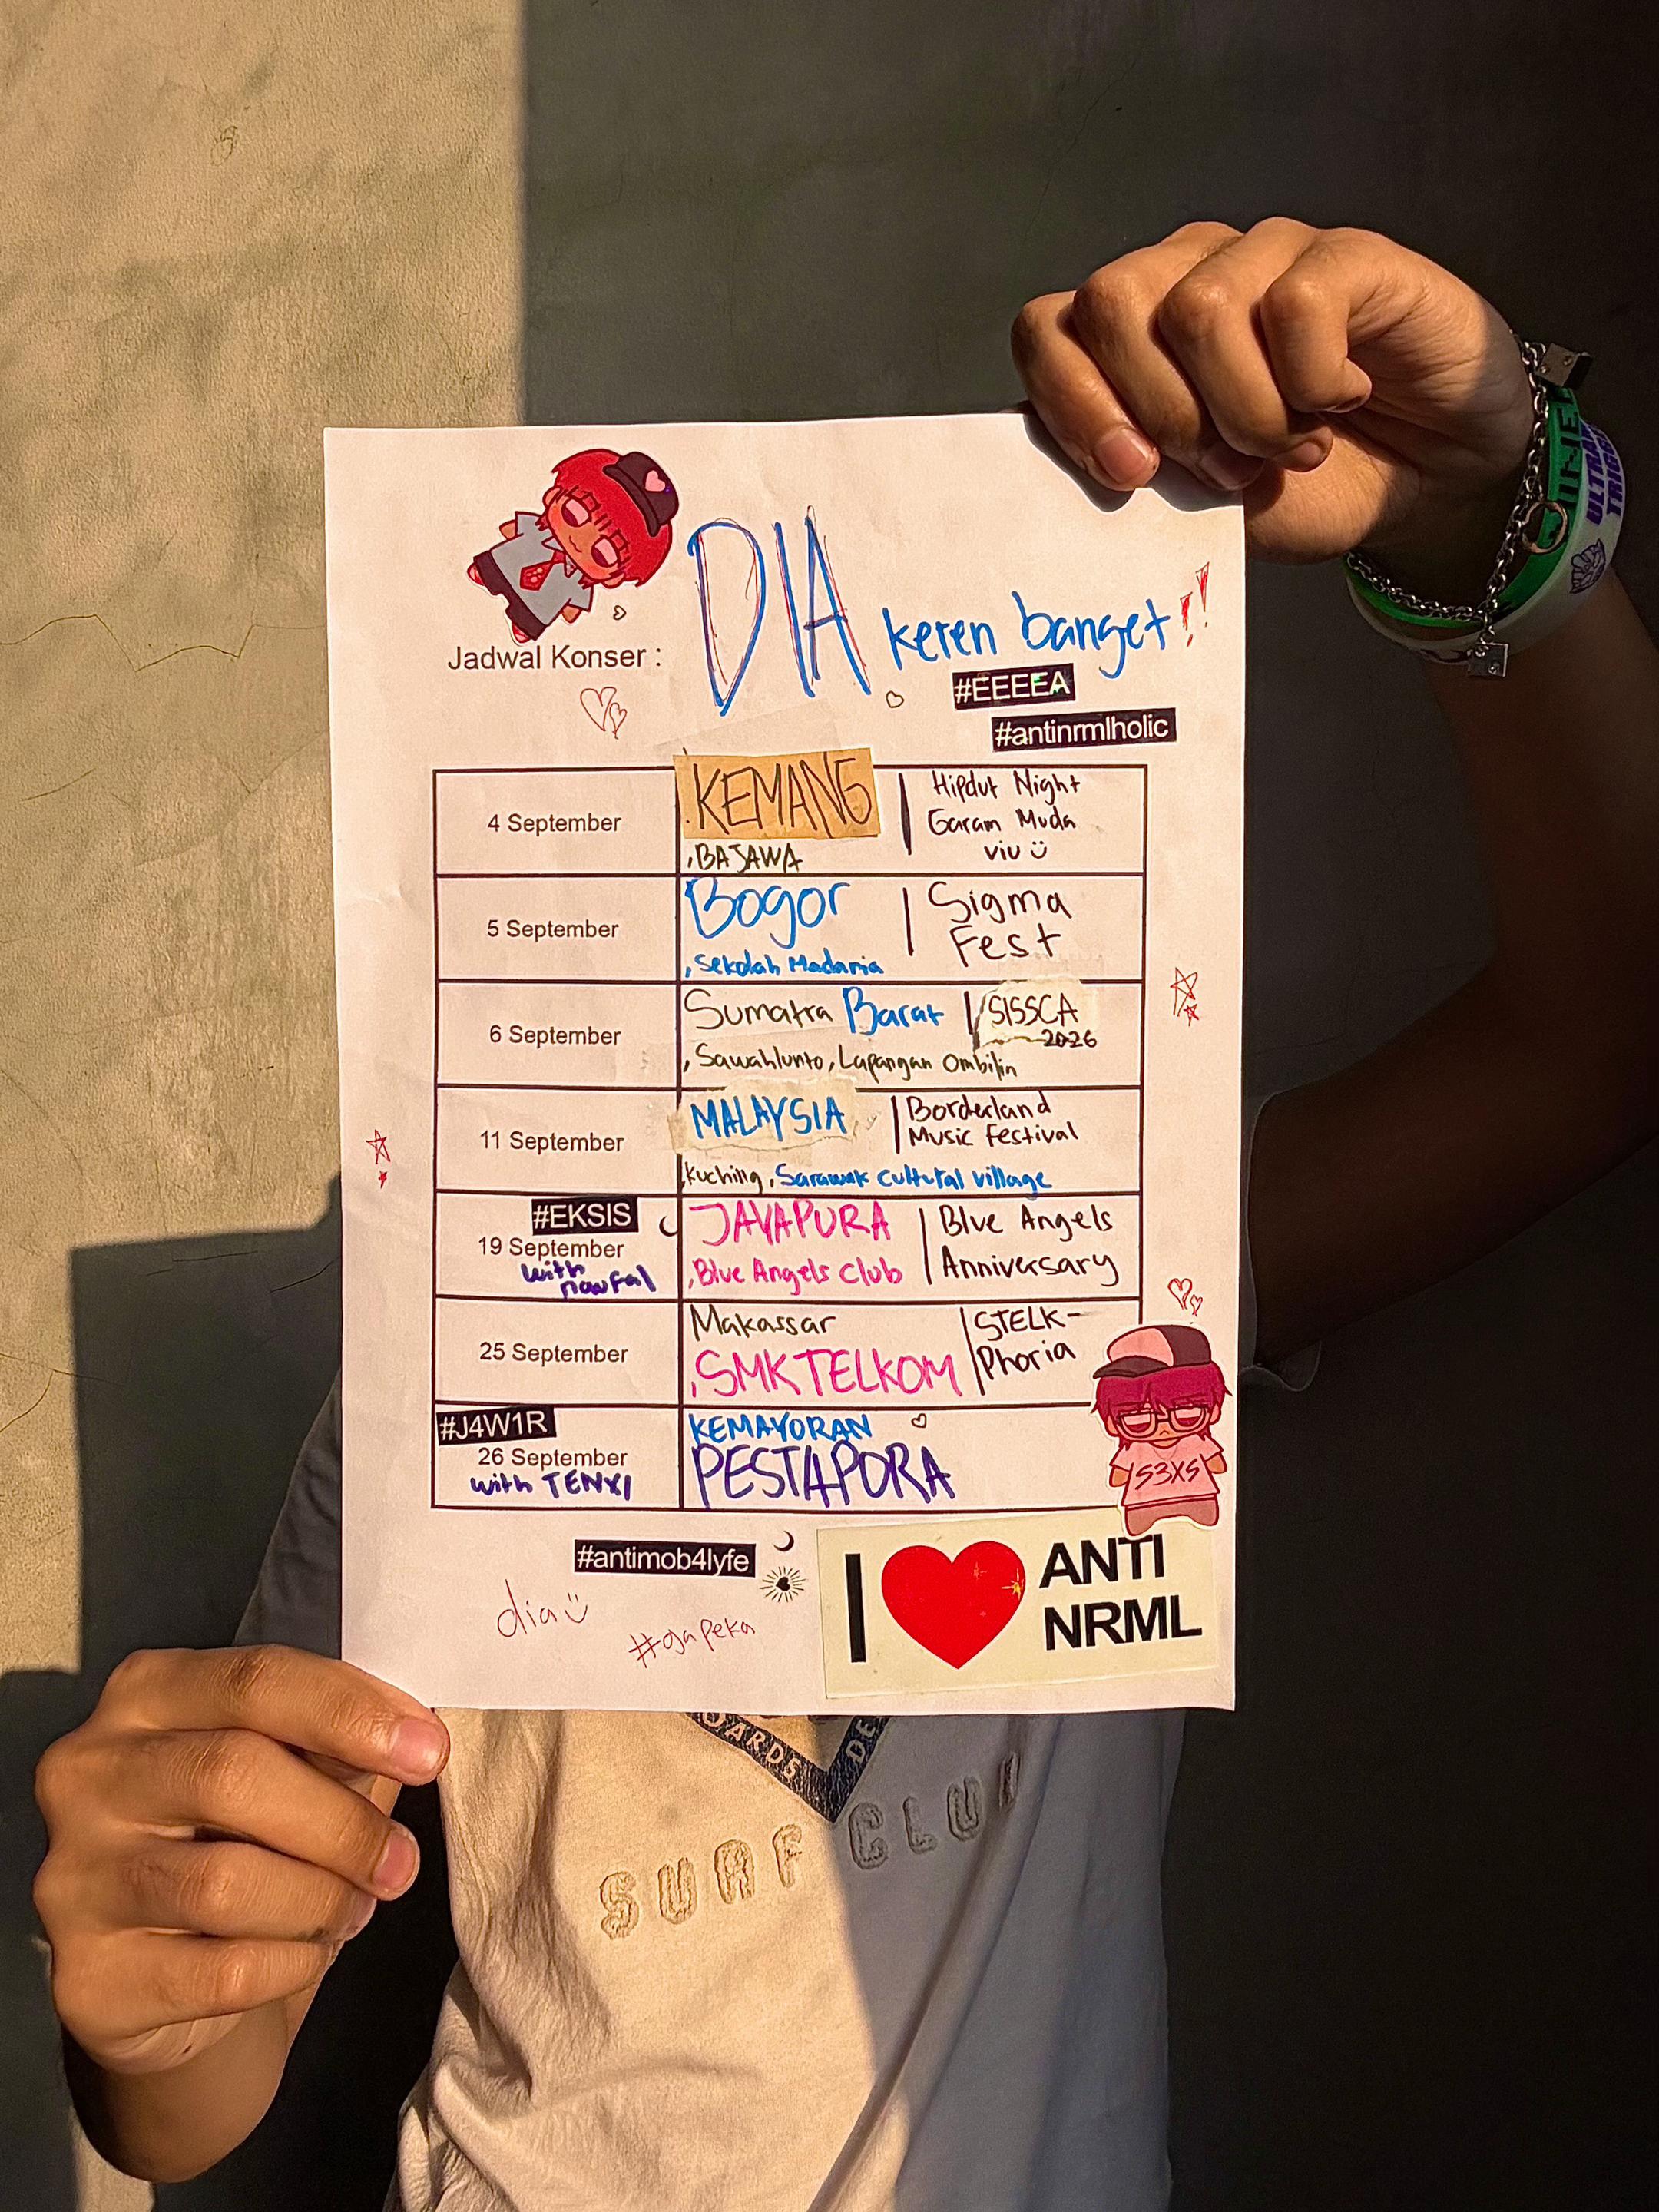 DIA keren banget!!
Jadwal Konser :
#EEEEA
#antinrmlholic
4 September
KEMANG
, BAJAWA
Hipdut Night
Garam Muda
viu
5 September
Bogor
, Sekolah Madania
Sigma
Fest
6 September
Sumatra Barat
, Sawahlunto, Lapangan Ombilin
SISSCA
2026
11 September
MALAYSIA
Kuching, Sarawak cultural village
Borderland
Music Festival
#EKSIS
19 September
with
nawfal
JAYAPURA
, Blue Angels Club
Blue Angels
Anniversary
25 September
Makassar
, SMK TELKOM
STELK-
Phoria
#J4W1R
26 September
with TENXI
KEMAYORAN
PESTAPORA
S3XS
#antimob4lyfe
dia
#gapeka
I ❤ ANTI
NRML
ARDS DE
SURF CLU
ULTRA
TRIGG